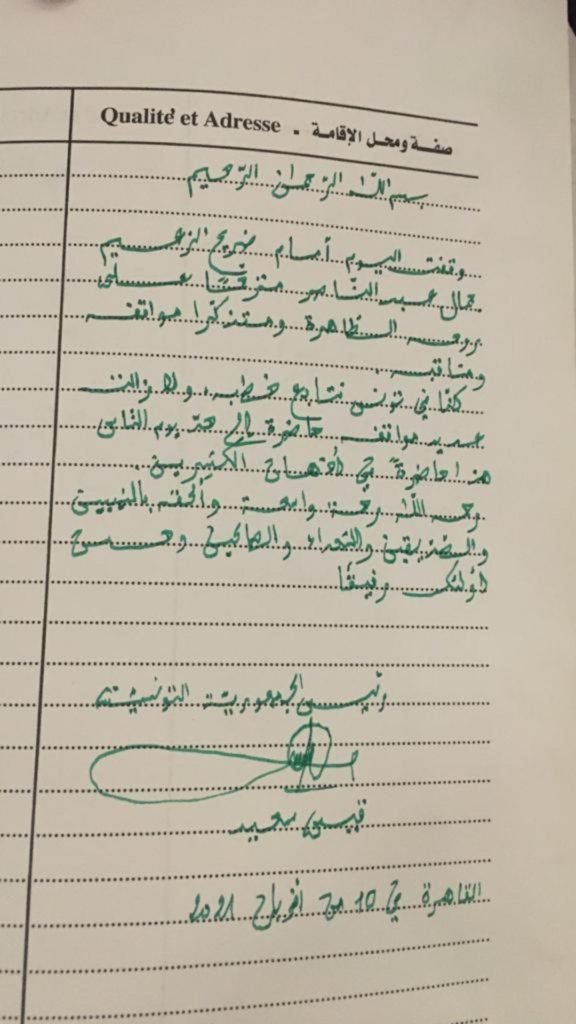 Qualité et Adresse - صفة ومحل الإقامة
بسم اللّه الرّحمان الرّحيم
وقفت اليوم أمام ضريح الزعيم
جمال عبد النّاصر مترحّمًا على
روحه الطّاهرة ومتذكّرا مواقفه
ومناقبه.
كنّا في تونس نتابع خطبه، ولا زالت
عديد مواقفه حاضرة إلى حدّ يوم النّاس
هذا حاضرةً في أذهان الكثيرين.
رحمه اللّه رحمة واسعة وألحقه بالنّبيين
والصدّيقين والشهداء والصالحين وحسن
أولئك رفيقًا
رئيس الجمهوريّة التونسيّة
قيس سعيد
القاهرة في 10 من أفريل 2021